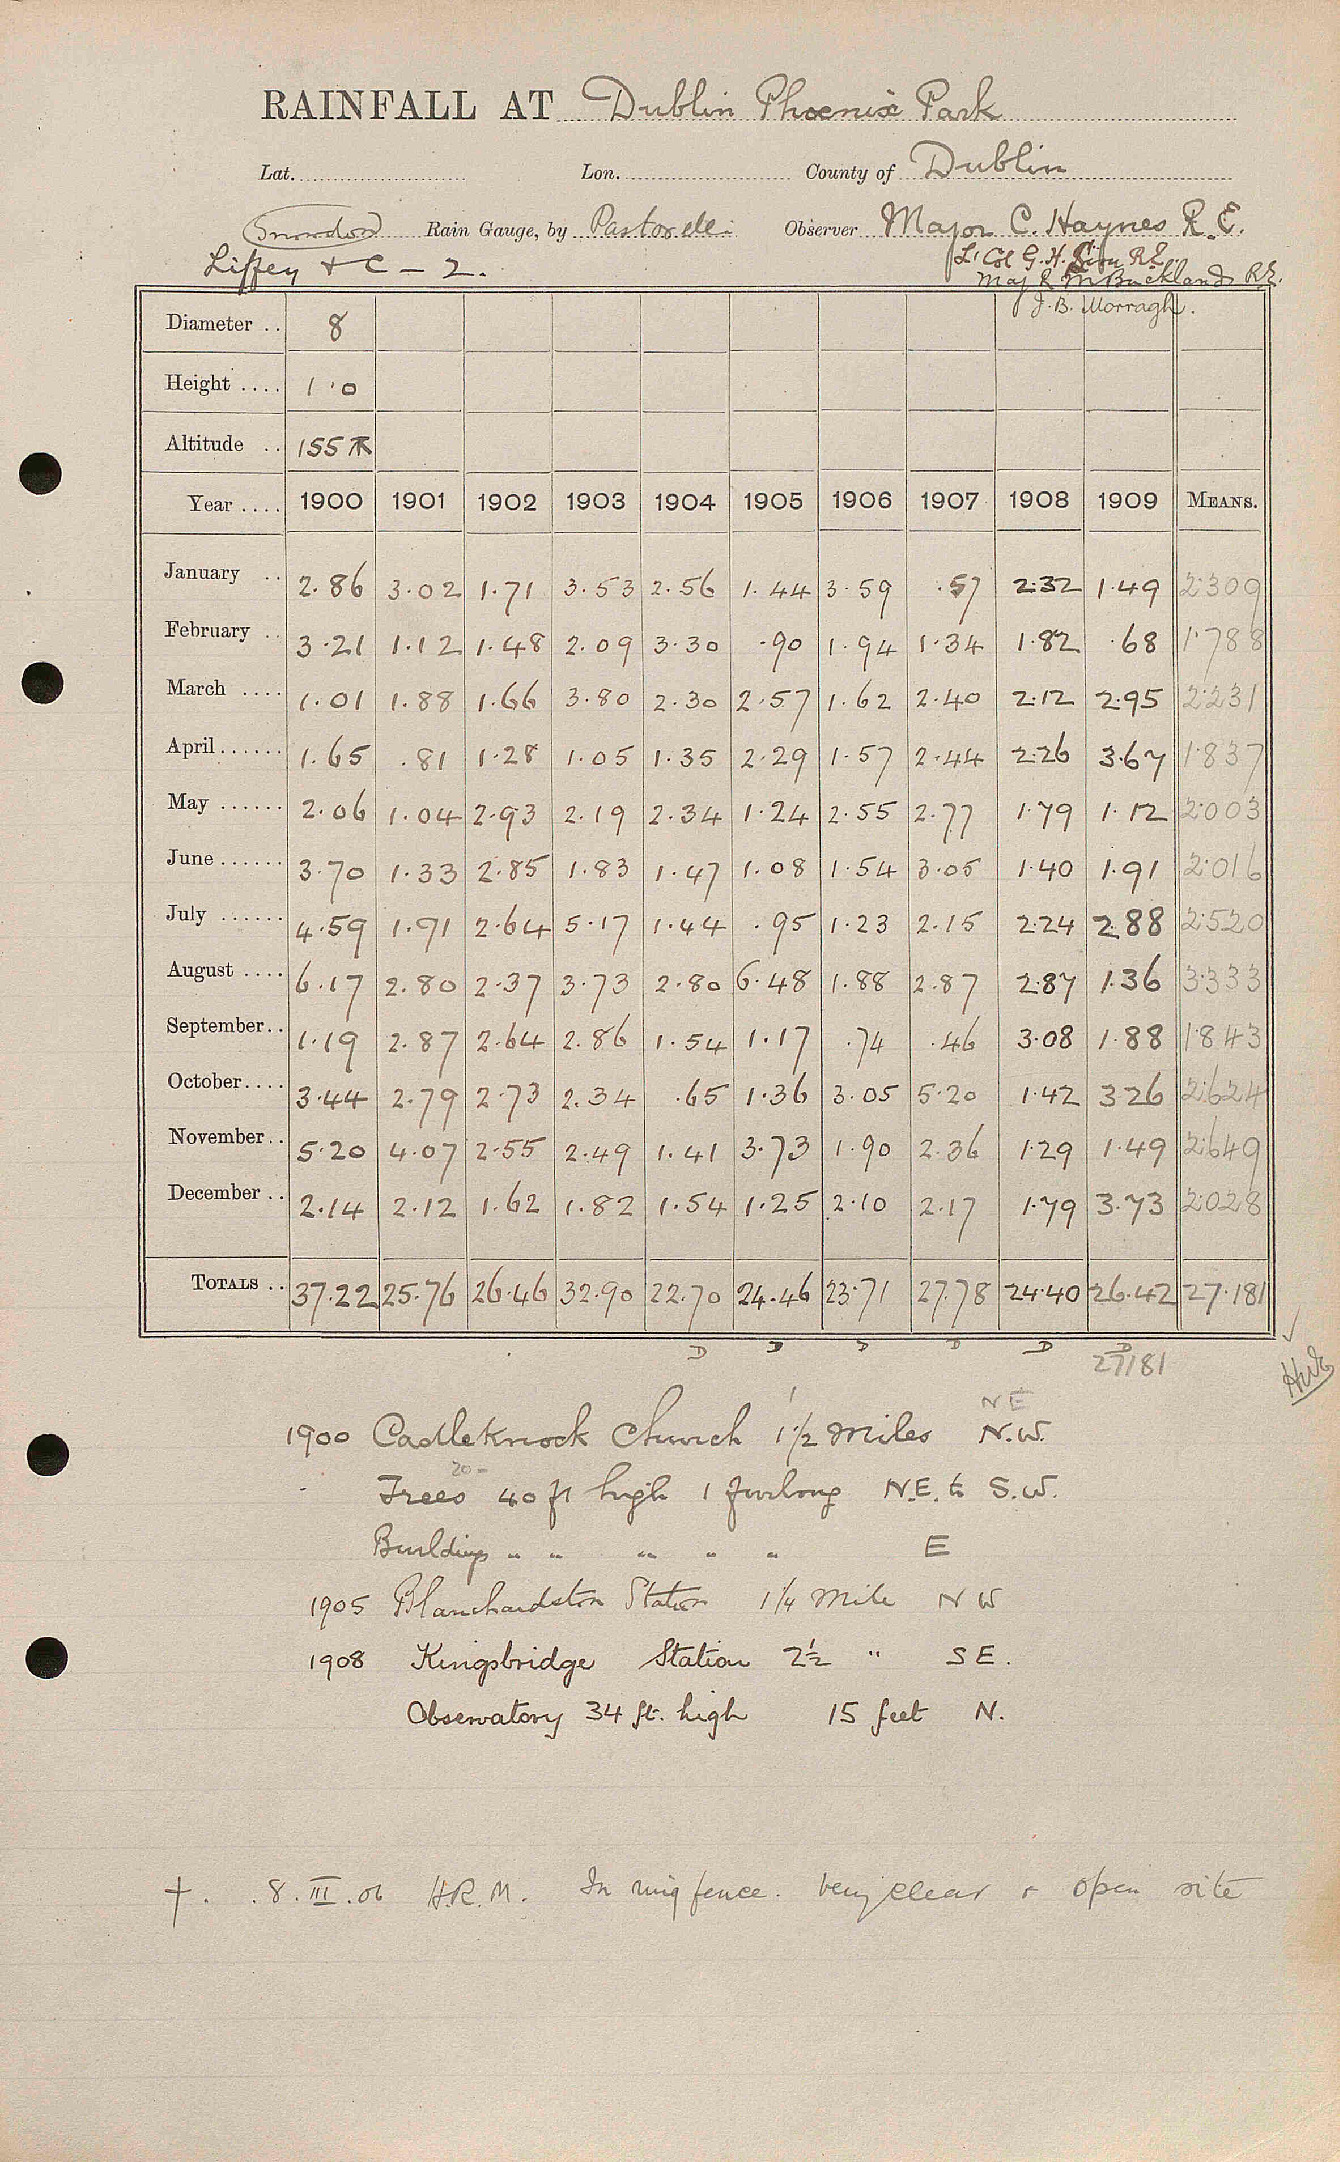 RAINFALL AT Dublin Phoenix Park
Lat. Lon. County of Dublin
Snowdon Rain Gauge, by Pastorelli Observer Major C. Haynes R.E.
Liffey & C – 2. Lt Col G. H. Sim R.E.
Maj R M Buckland R.E.
J. B. Worragh.
Diameter .. 8
Height .... 1.0
Altitude .. 155
Year .... 1900 1901 1902 1903 1904 1905 1906 1907 1908 1909 MEANS.
January .. 2.86 3.02 1.71 3.53 2.56 1.44 3.59 .57 2.32 1.49 2.309
February .. 3.21 1.12 1.48 2.09 3.30 .90 1.94 1.34 1.82 .68 1.788
March .... 1.01 1.88 1.66 3.80 2.30 2.57 1.62 2.40 2.12 2.95 2.231
April ...... 1.65 .81 1.28 1.05 1.35 2.29 1.57 2.44 2.26 3.67 1.837
May ...... 2.06 1.04 2.93 2.19 2.34 1.24 2.55 2.77 1.79 1.12 2.003
June ...... 3.70 1.33 2.85 1.83 1.47 1.08 1.54 3.05 1.40 1.91 2.016
July ...... 4.59 1.91 2.64 5.17 1.44 .95 1.23 2.15 2.24 2.88 2.520
August .... 6.17 2.80 2.37 3.73 2.80 6.48 1.88 2.87 2.87 1.36 3.333
September .. 1.19 2.87 2.64 2.86 1.54 1.17 .74 .46 3.08 1.88 1.843
October .... 3.44 2.79 2.73 2.34 .65 1.36 3.05 5.20 1.42 3.26 2.624
November .. 5.20 4.07 2.55 2.49 1.41 3.73 1.90 2.36 1.29 1.49 2.649
December .. 2.14 2.12 1.62 1.82 1.54 1.25 2.10 2.17 1.79 3.73 2.028
TOTALS .. 37.22 25.76 26.46 32.90 22.70 24.46 23.71 27.78 24.40 26.42 27.181
D D D D D D
27181
NE
1900 Castleknock Church 1 1/2 miles N.W.
20
Trees 40 ft high 1 furlong N.E. to S.W.
Buildings " " " " " E
1905 Blanchardston Station 1 1/4 mile N W
1908 Kingsbridge Station 2 1/2 " S E.
Observatory 34 ft. high 15 feet N.
†. .8.III.06 H.R.M. In ring fence. Very clear & open site